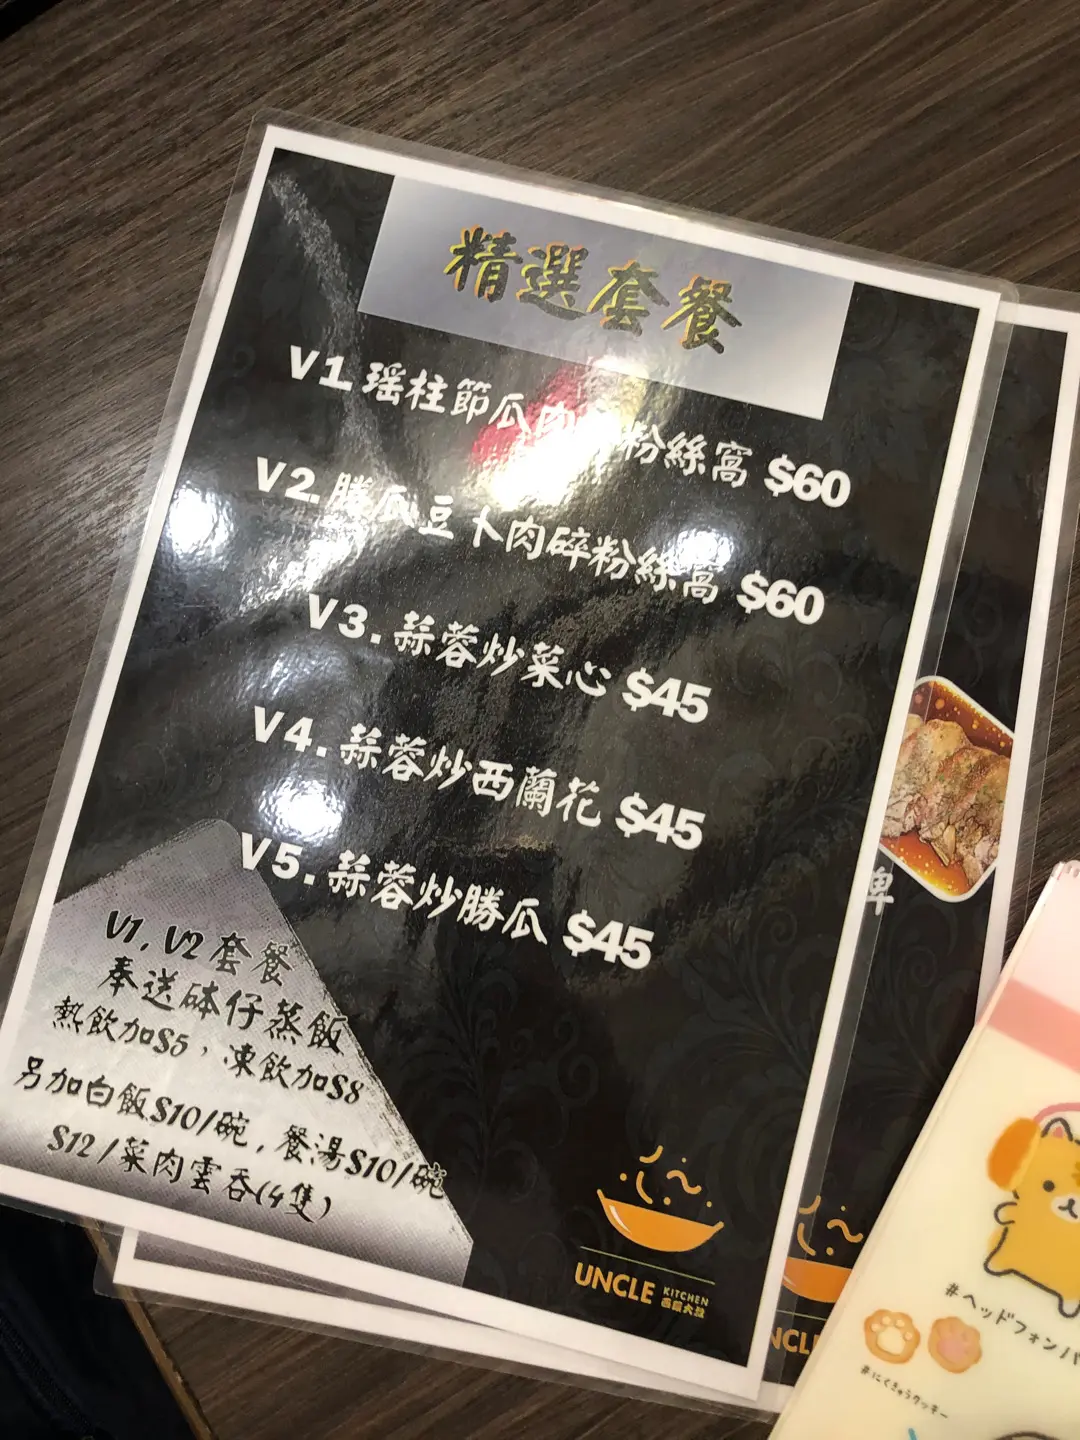 精選套餐
V1.瑤柱節瓜肉 粉絲窩 $60
V2.勝瓜豆卜肉碎粉絲窩 $60
V3.蒜蓉炒菜心 $45
V4.蒜蓉炒西蘭花 $45
V5.蒜蓉炒勝瓜 $45
V1,V2套餐
奉送砵仔蒸飯
熱飲加$5，凍飲加$8
另加白飯$10/碗,餐湯$10/碗
$12/菜肉雲吞(4隻)
UNCLE KITCHEN
牌
NCL
#ヘッドフォンパ
#にくきゅうクッキー